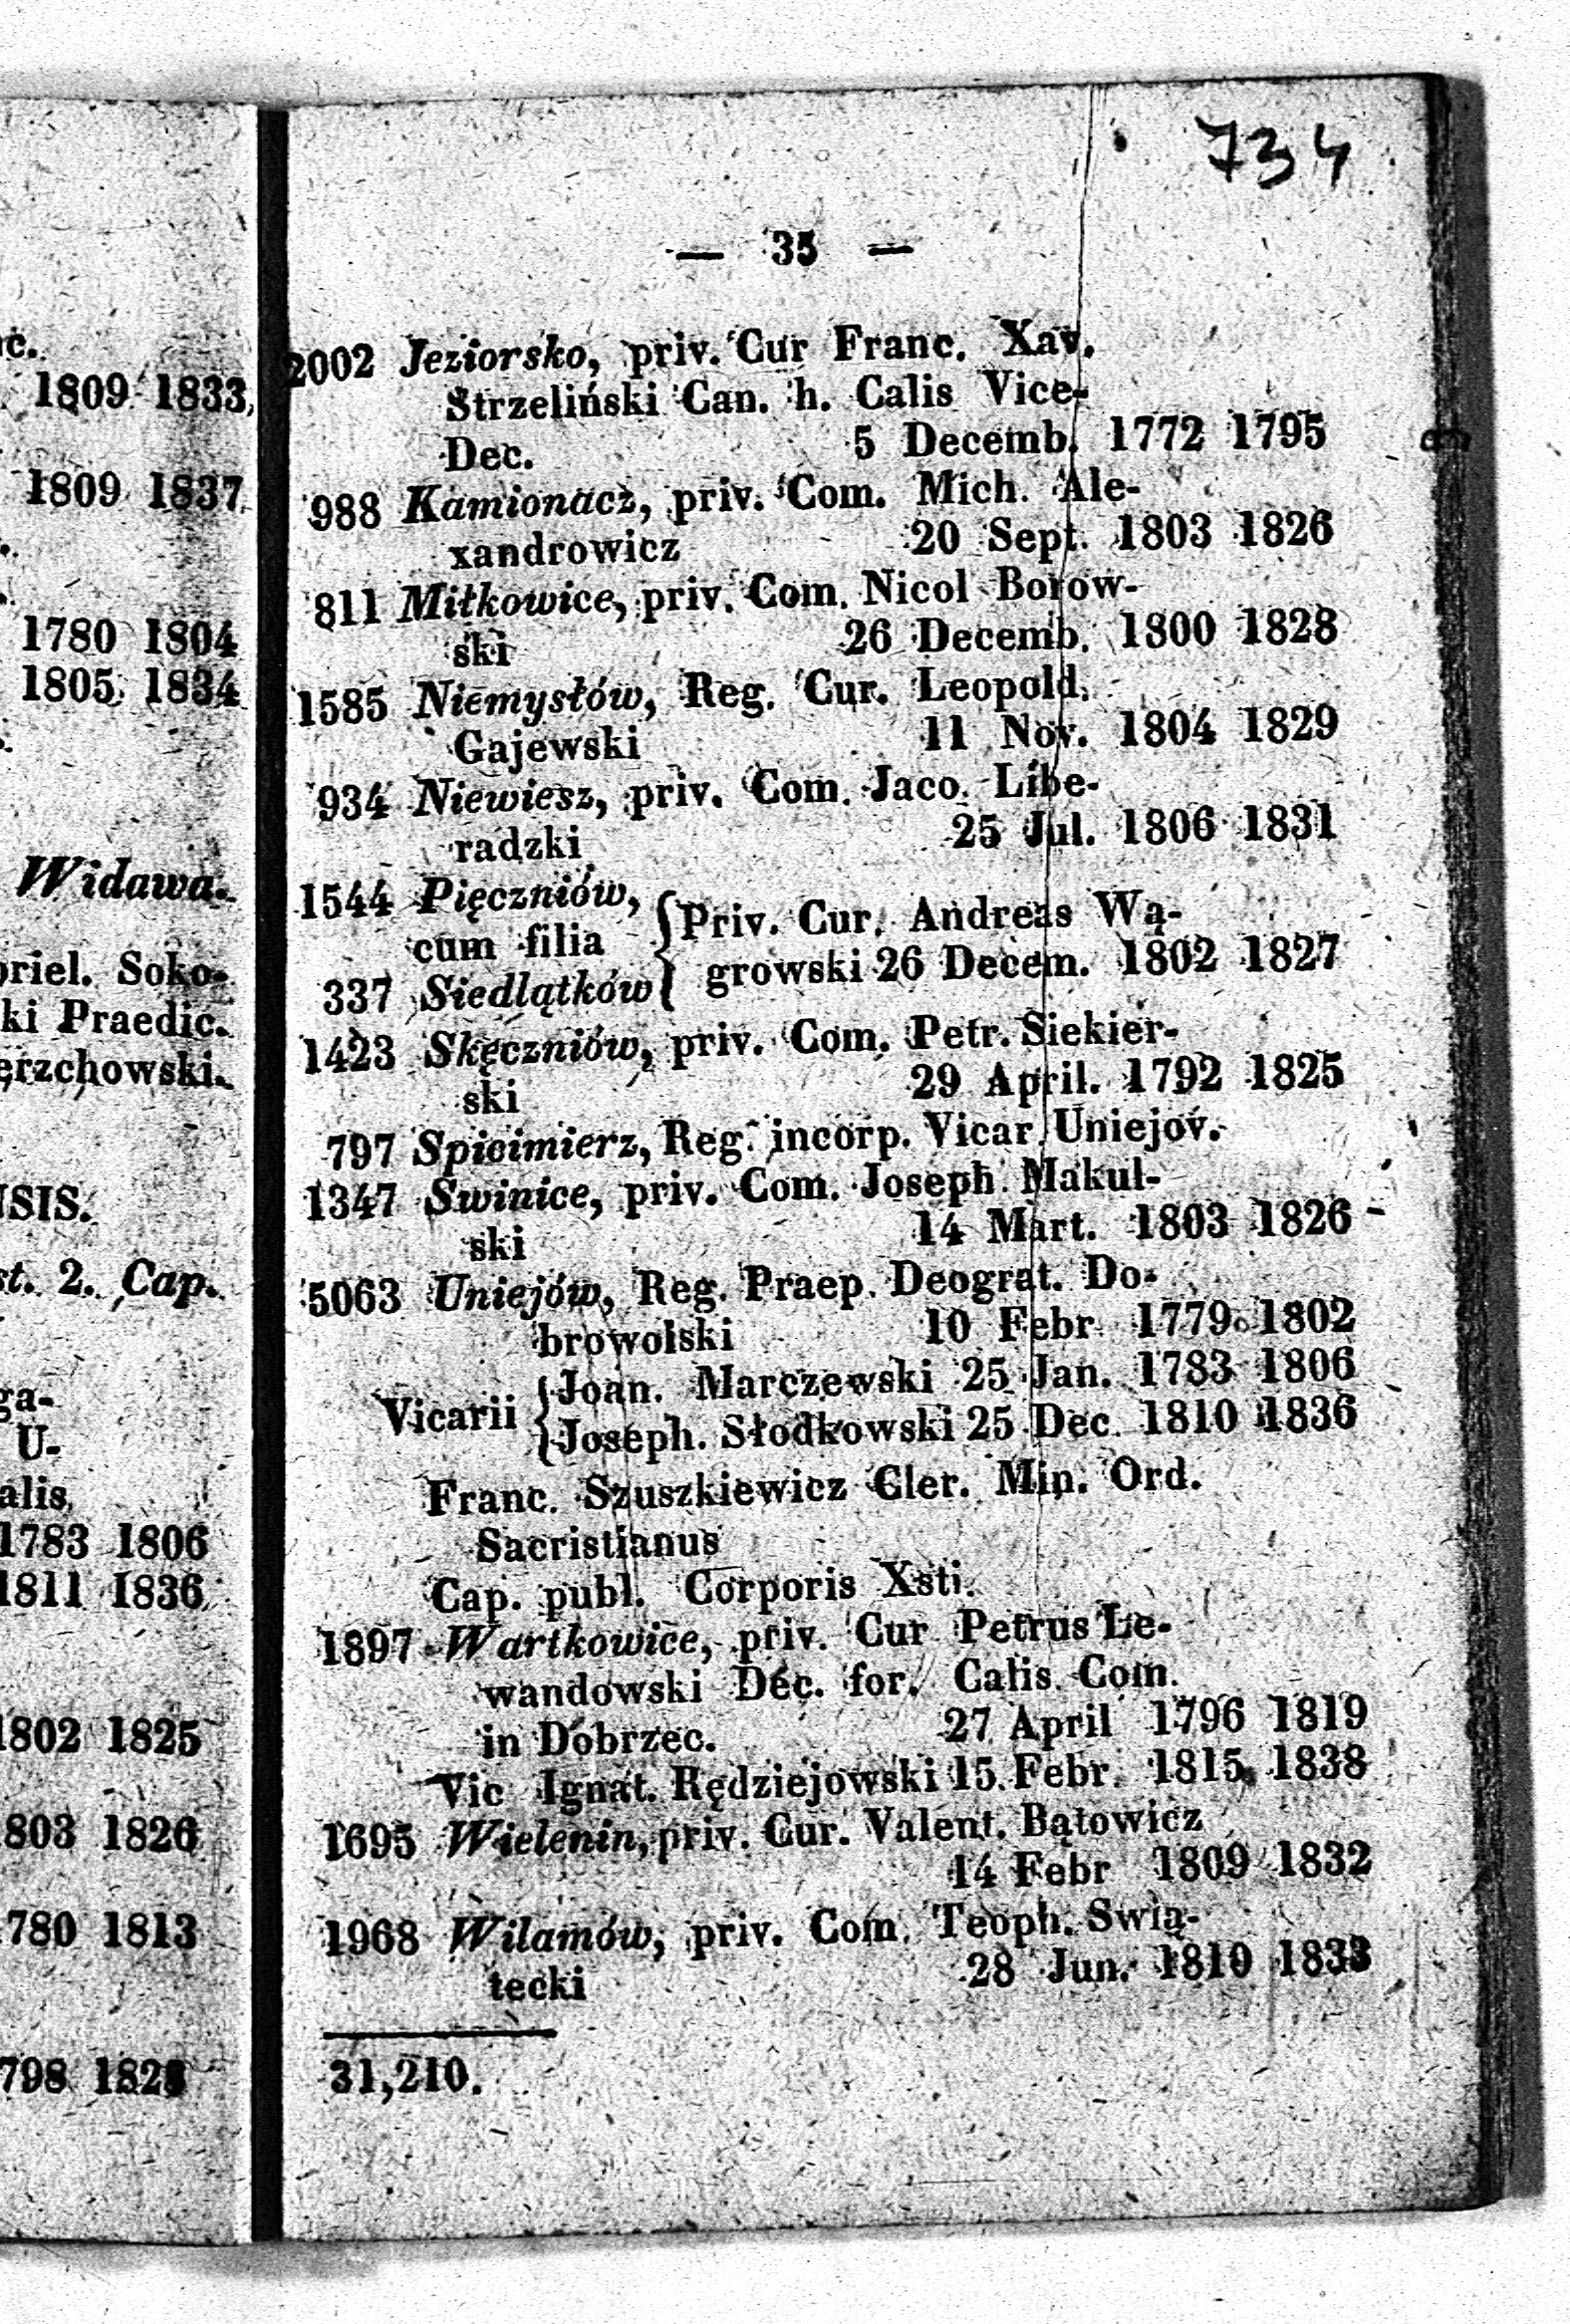 c.
1809 1833,
1809 1837
1780 1804
1805 1834
Widawa.
riel. Soko-
ki Praedic.
erzchowski.
SIS.
st. 2. Cap.
ga-
U-
alis
1783 1806
1811 1836
1802 1825
803 1826
780 1813
798
734
— 35 —
2002 Jeziorsko, priv. Cur Franc. Xav.
Strzeliński Can. h. Calis Vice-
Dec. 5 Decemb. 1772 1795
988 Kamionacz, priv. Com. Mich. Ale-
xandrowicz 20 Sept. 1803 1826
811 Miłkowice, priv. Com. Nicol Borow-
ski 26 Decemb. 1800 1828
1585 Niemysłów, Reg. Cur. Leopold.
Gajewski 11 Nov. 1804 1829
934 Niewiesz, priv. Com. Jaco. Libe-
radzki 25 Jul. 1806 1831
1544 Pięczniów,
cum filia {Priv. Cur. Andreas Wą-
337 Siedlątków growski 26 Decem. 1802 1827
1423 Skęczniów, priv. Com. Petr. Siekier-
ski 29 April. 1792 1825
797 Spicimierz, Reg. incorp. Vicar. Uniejov.
1347 Swinice, priv. Com. Joseph. Makul-
ski 14 Mart. 1803 1826
5063 Uniejów, Reg. Praep. Deograt. Do-
browolski 10 Febr. 1779 1802
Vicarii {Joan. Marczewski 25 Jan. 1783 1806
Joseph. Słodkowski 25 Dec. 1810 1836
Franc. Szuszkiewicz Cler. Min. Ord.
Sacristianus
Cap. publ. Corporis Xsti.
1897 Wartkowice, priv. Cur Petrus Le-
wandowski Dec. for. Calis. Com.
in Dobrzec. 27 April 1796 1819
Vic Ignat. Rędziejowski 15 Febr. 1815 1838
1695 Wielenin, priv. Cur. Valent. Bątowicz
14 Febr 1809 1832
1968 Wilamów, priv. Com. Teoph. Swią-
tecki 28 Jun. 1810 1833
31,210.